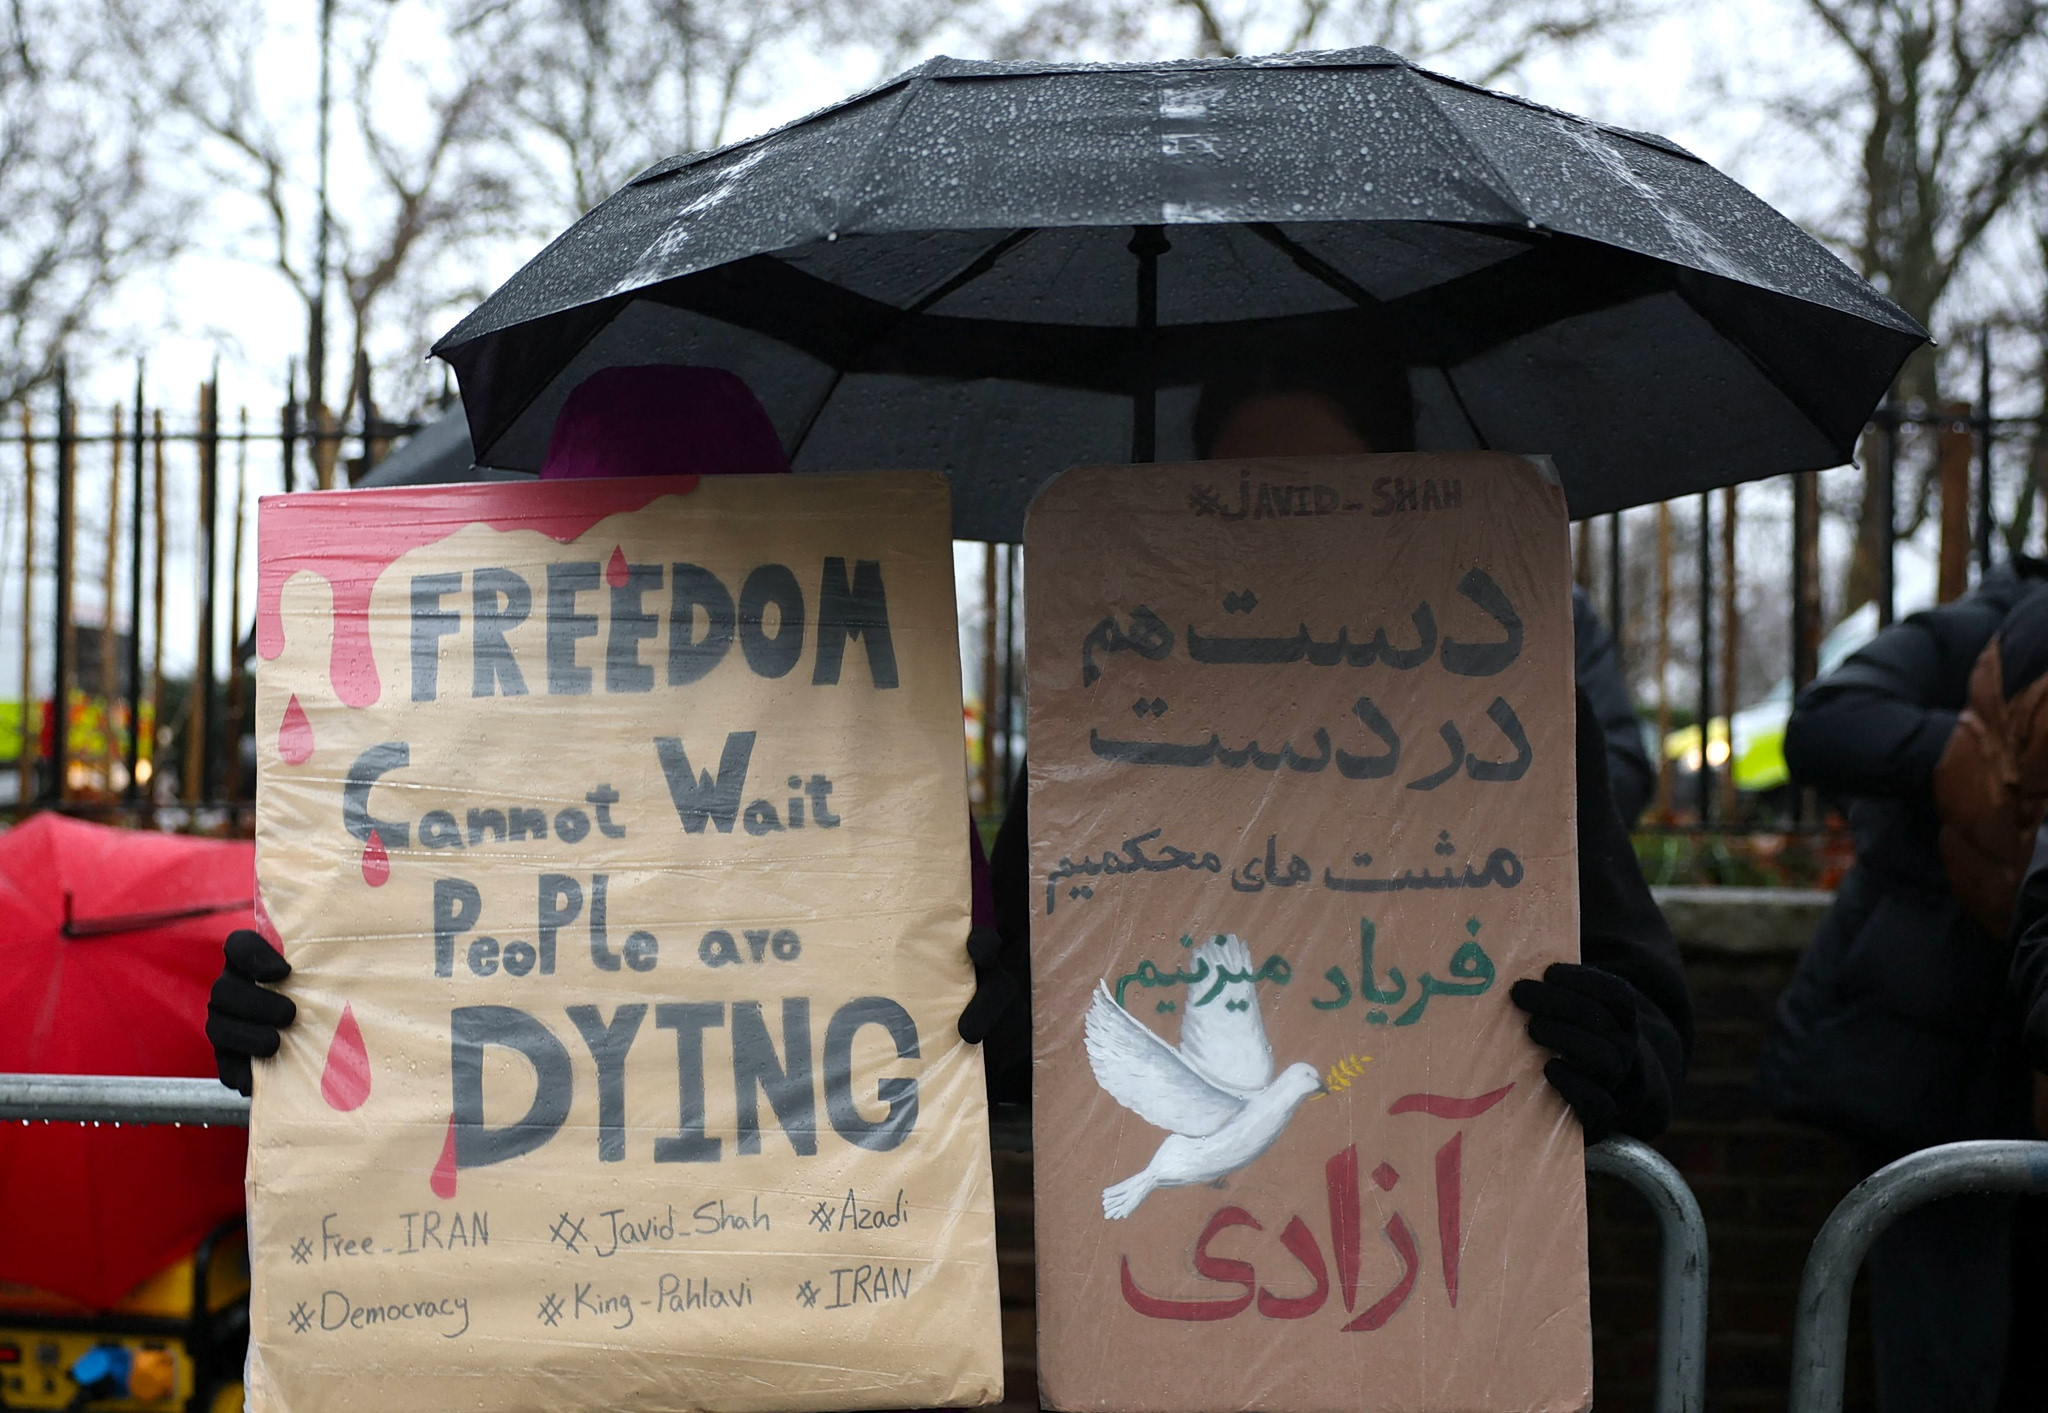 FREEDOM
Cannot Wait
PeoPle are
DYING
#Free_IRAN #Javid_Shah #Azadi
#Democracy #King-Pahlavi #IRAN
#JAVID_SHAH
دست هم
در دست
مشت های محکمیم
فریاد میزنیم
آزادی